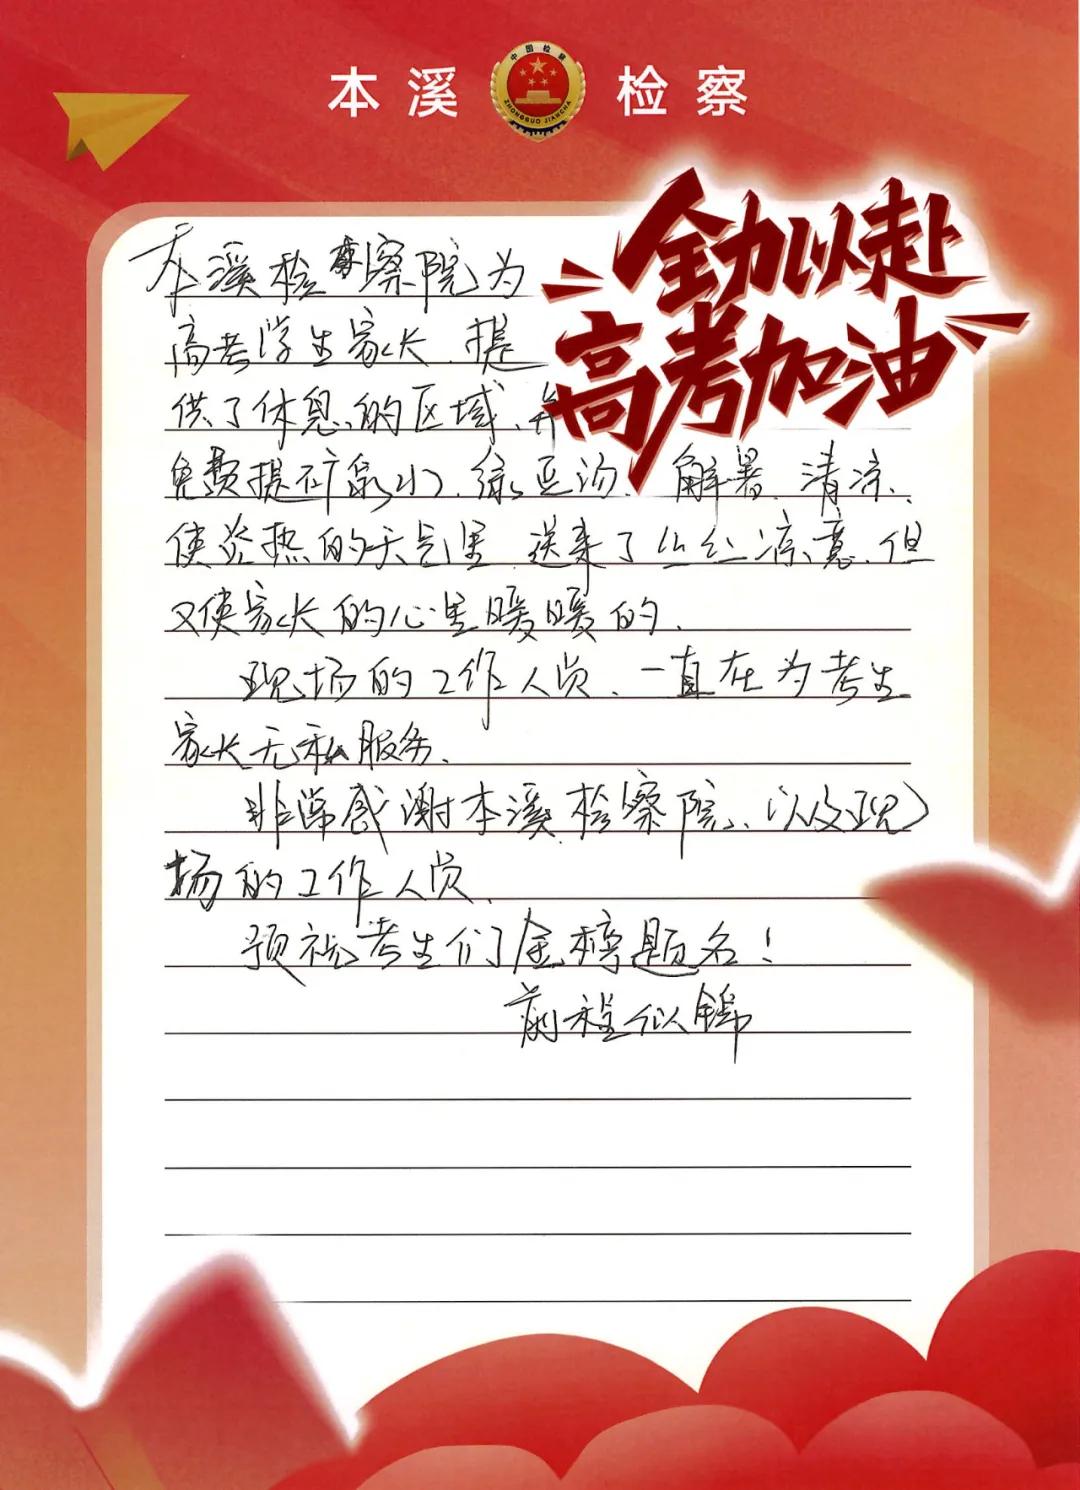 本溪 检察
中国检察
ZHONGGUO JIANCHA
全力以赴
高考加油
本溪检察院为
高考学生家长.提
供了休息的区域.并
免费提矿泉水.绿豆汤.解暑.清凉.
使炎热的天气里.送来了丝丝凉意.但
又使家长的心里暖暖的.
现场的工作人员.一直在为考生
家长无私服务.
非常感谢本溪检察院.以及现
场的工作人员.
预祝考生们金榜题名!
前程似锦